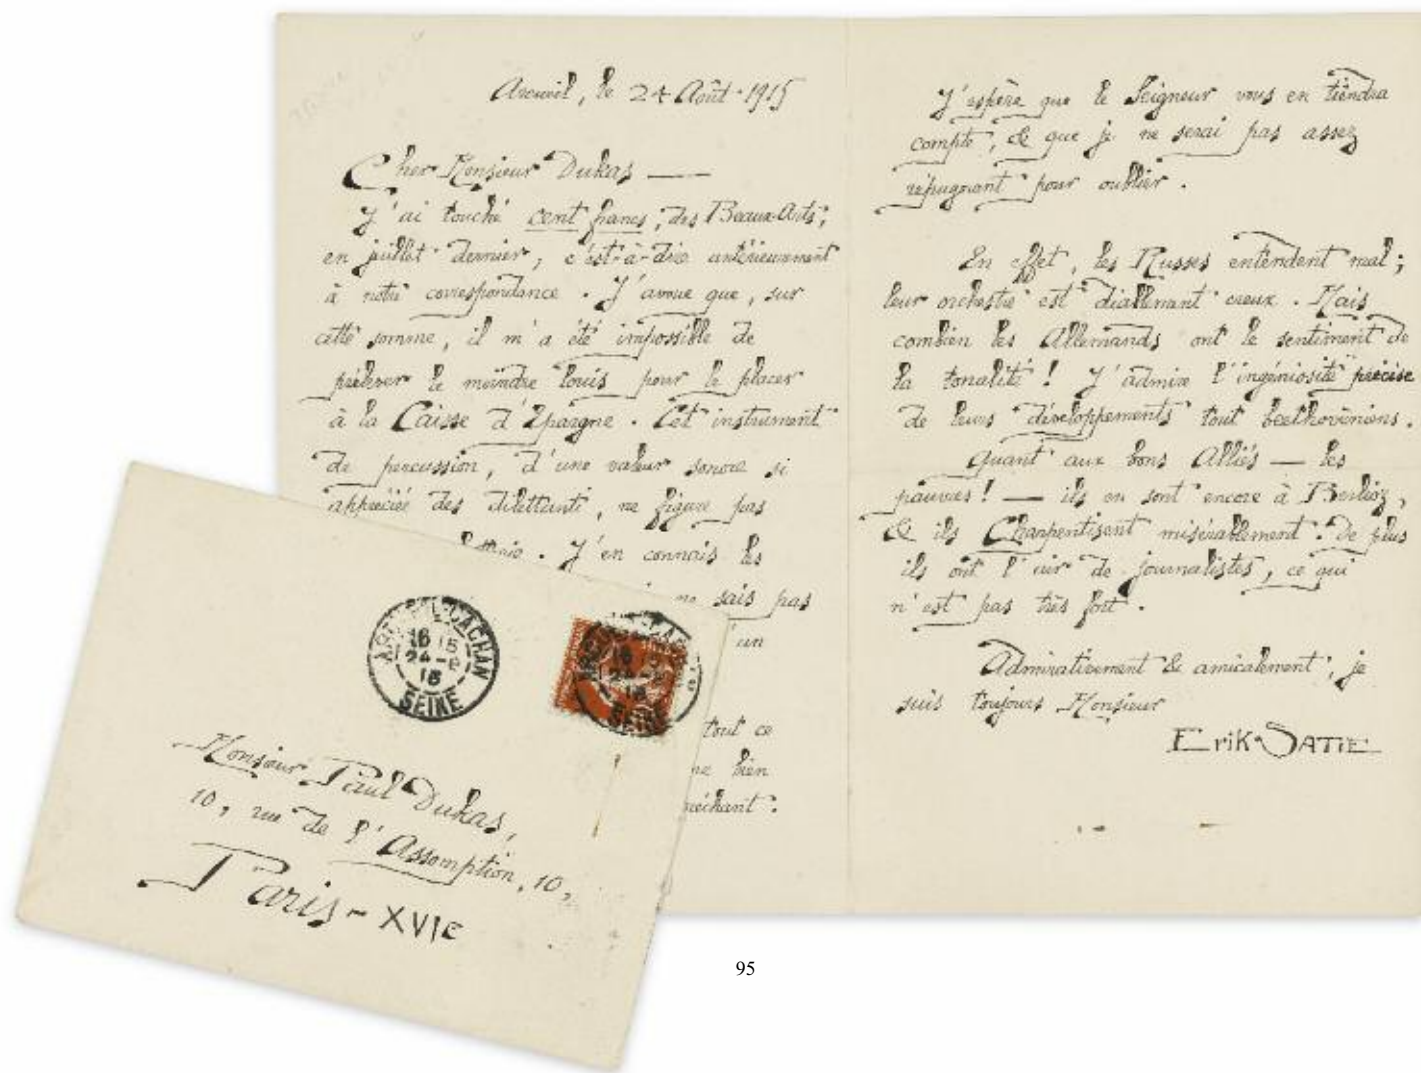 Arcueil, le 24 Août 1915
Cher Monsieur Dukas —
J'ai touché cent francs, des Beaux-Arts,
en juillet dernier, c'est-à-dire antérieurement
à notre correspondance. J'avoue que, sur
cette somme, il m'a été impossible de
prélever le moindre louis pour le placer
à la Caisse d'Epargne. Cet instrument
de percussion, d'une valeur sonore si
appréciée des dilettanti, ne figure pas
J'en connais les
ne sais pas
un
tout ce
bien
méchant.
J'espère que le Seigneur vous en tiendra
compte, & que je ne serai pas assez
répugnant pour oublier.
En effet, les Russes entendent mal;
leur orchestre est creux. Mais
combien les Allemands ont le sentiment de
la tonalité! J'admire l'ingéniosité précise
de leurs développements tout beethovéniens.
Quant aux bons Alliés — les
pauvres! — ils en sont encore à Berlioz,
& ils Charpentisent misérablement. De plus
ils ont l'air de journalistes, ce qui
n'est pas très fort.
Admirativement & amicalement, je
suis toujours Monsieur
Erik SATIE
CACHAN
24-8
15
SEINE
Monsieur Paul Dukas,
10, rue de l'Assomption, 10,
Paris - XVIe
95